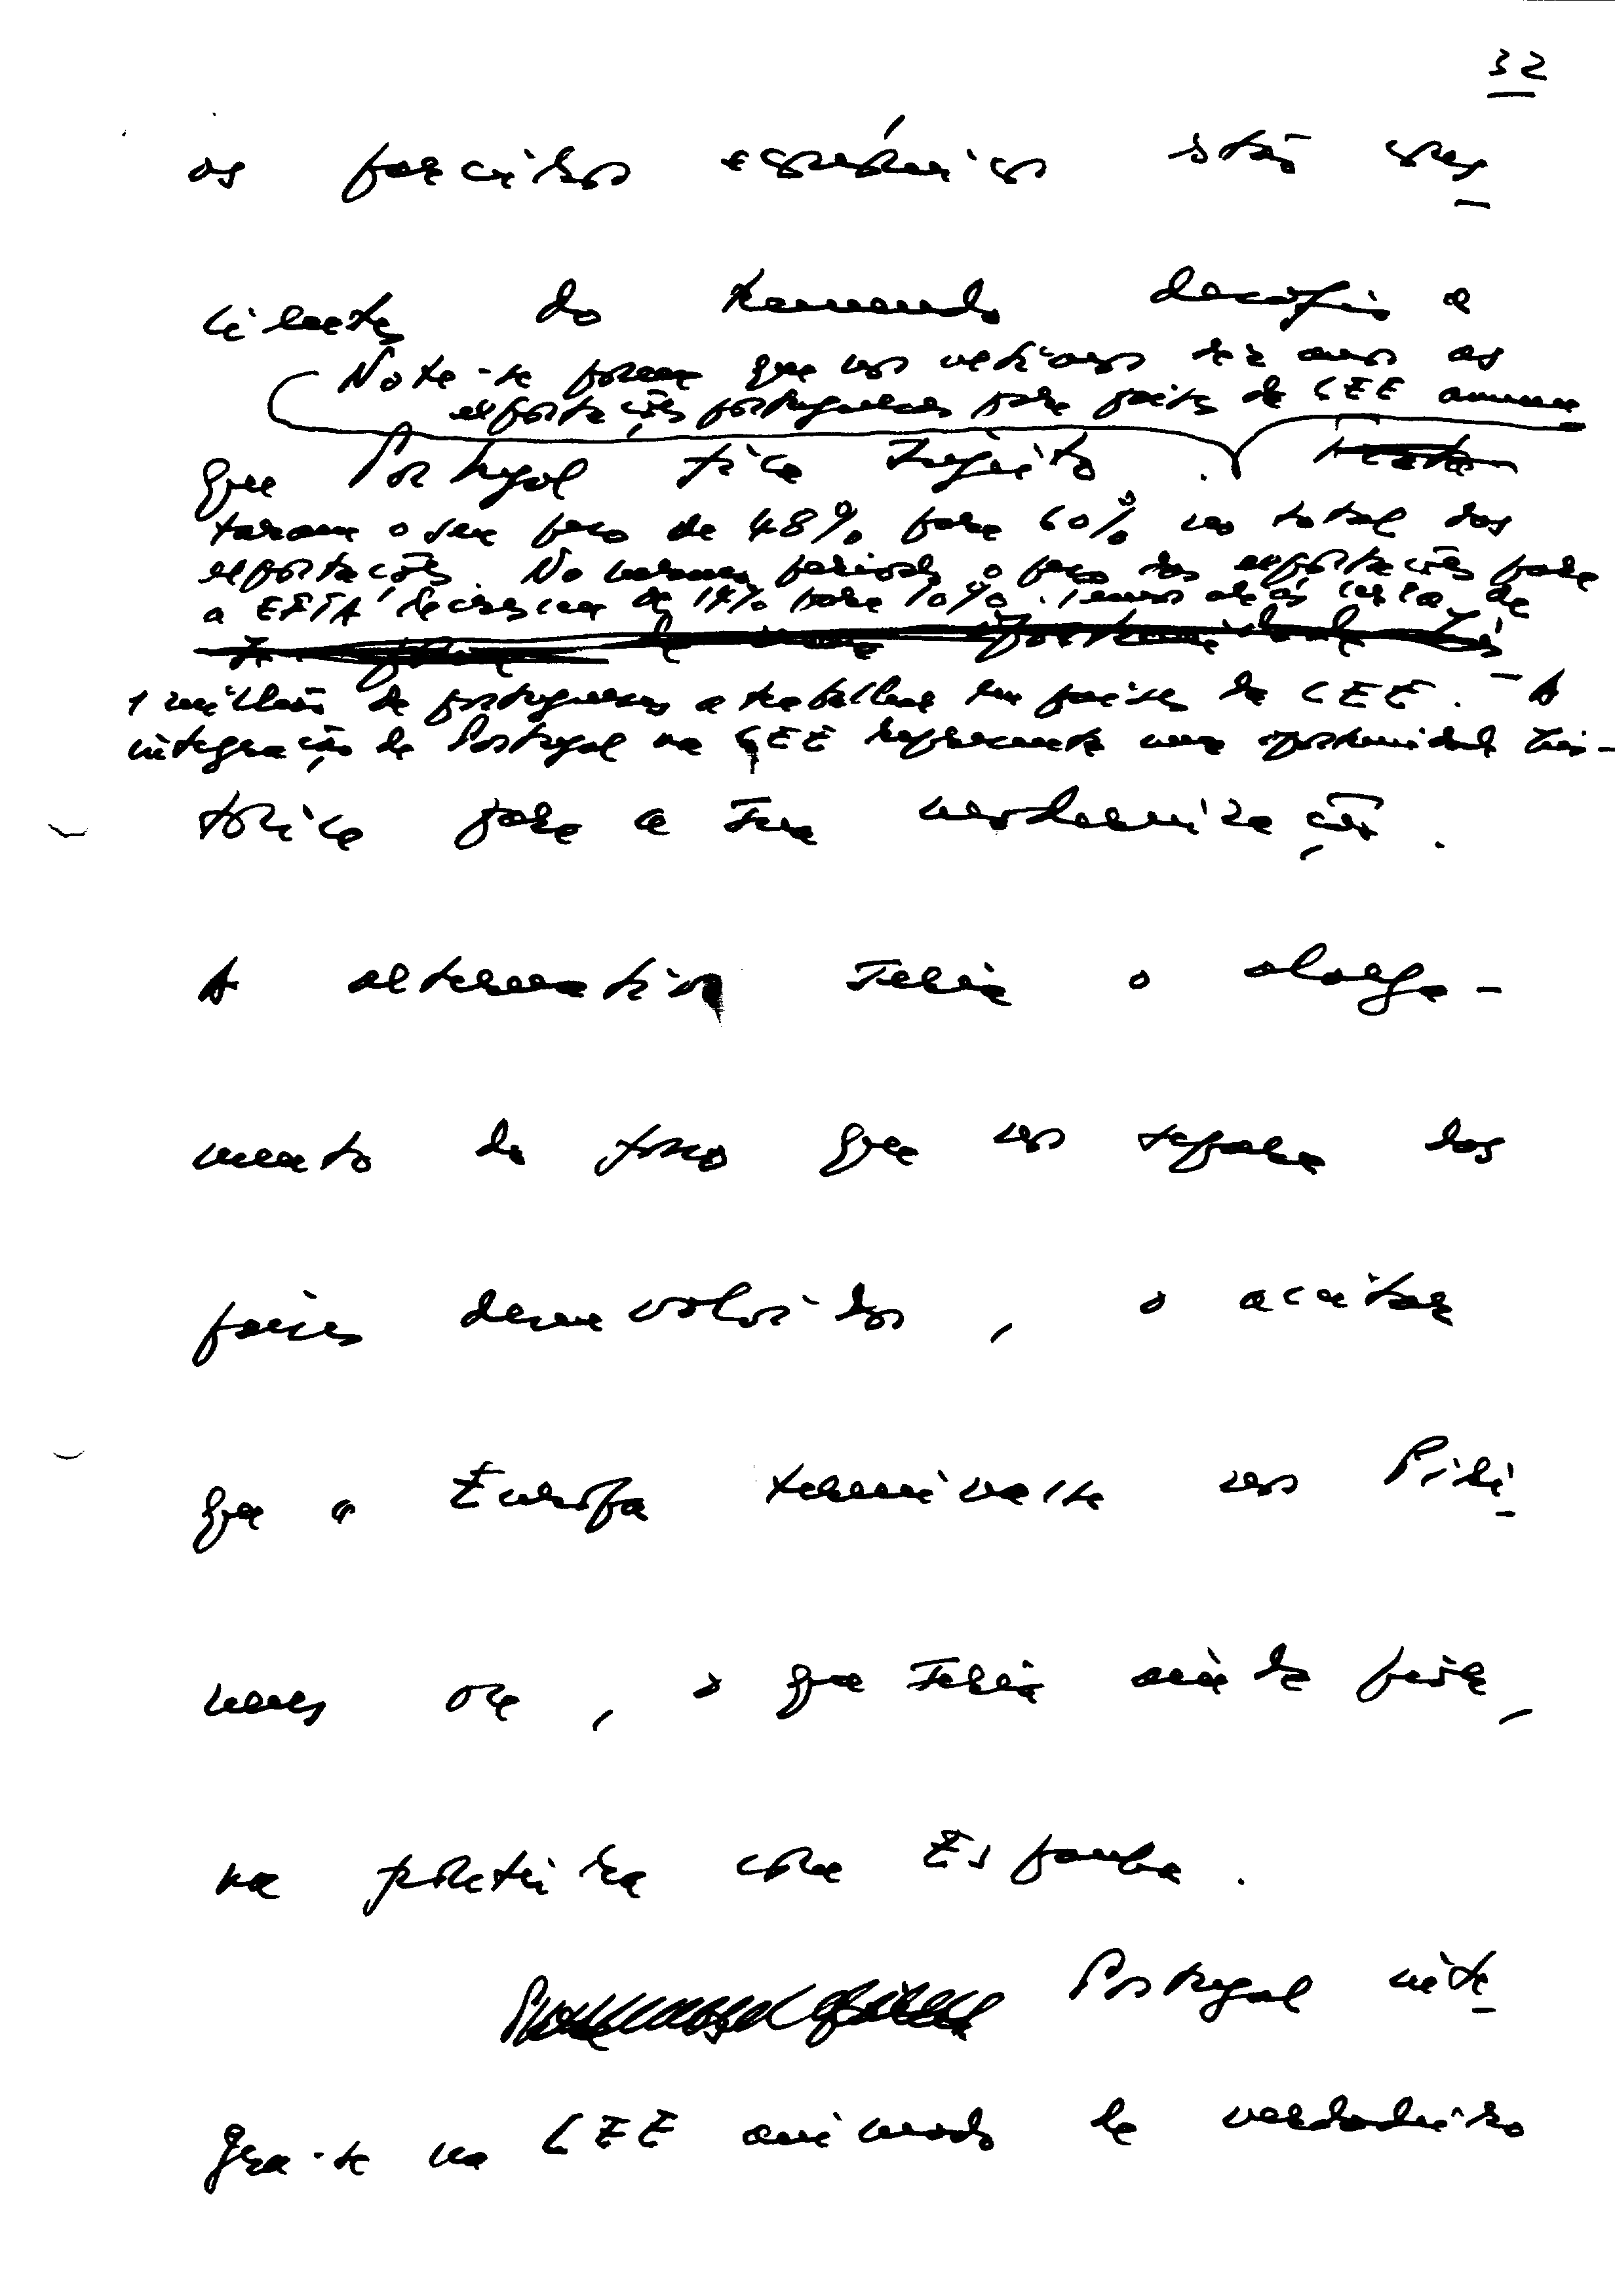 32
os parceiros económicos estão cons-
cientes do tremendo desafio a
Note-se porém que nos últimos dez anos as
exportações portuguesas para países da CEE aumen-
que Portugal fica sujeito.
taram o seu peso de 48% para 60% no total das
exportações. No mesmo período o peso das exportações para
a EFTA decresceu de 17% para 10%. Temos aliás cerca de
1 milhão de portugueses a trabalhar em países da CEE. - A
integração de Portugal na CEE representa uma oportunidade his-
tórica para a sua modernização.
A alternativa seria o alarga-
mento do fosso que nos separa dos
países desenvolvidos, o aceitar
que a Europa terminasse nos Piri-
neus ou, o que seria ainda pior,
na fronteira com Espanha.
Portugal inte-
gra-se na CEE animado de verdadeiro